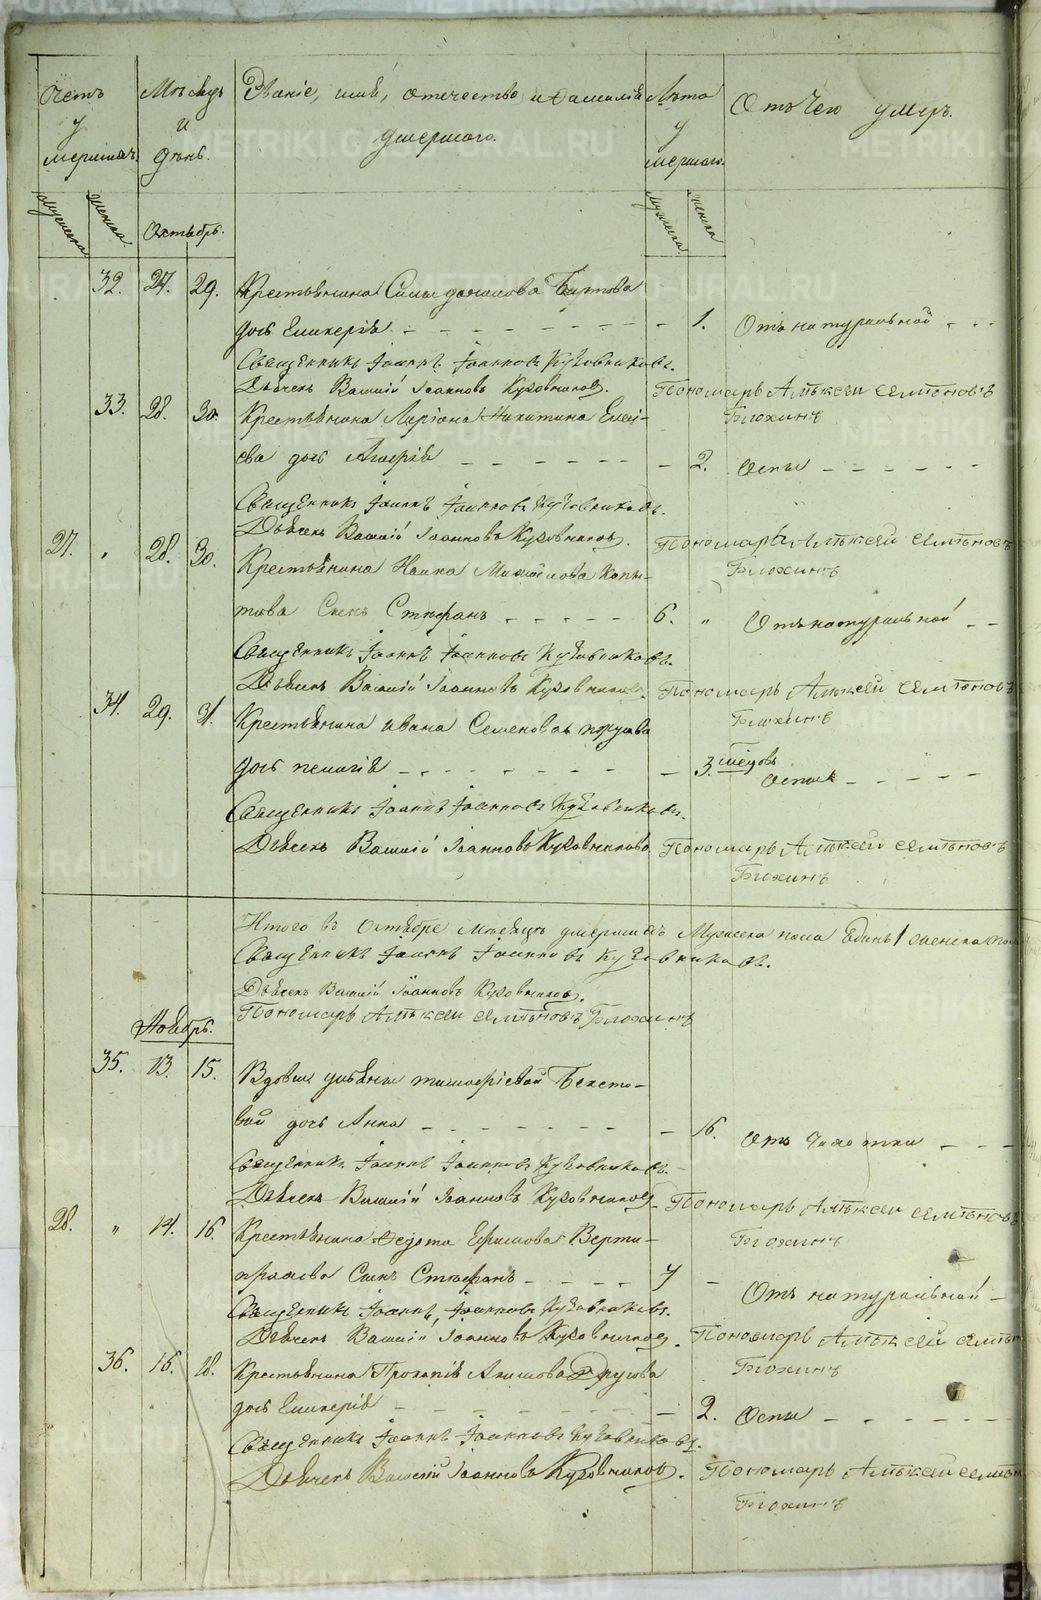 Счетъ умершихъ. Мѣсяцъ и день. Званіе, имя, отечество и фамилія умершаго. Лѣта умершаго. Отъ чего умеръ.
мужеска женска. мужеска женска
Октябрь.
32. 27. 29. Крестьянина Силы
дочь Гликерія 1. Отъ натуральной
Священникъ Іоаннъ Іоанновъ Кузовниковъ.
Дьячекъ Василій Іоанновъ Кузовниковъ. Пономарь Алѣксей Семіоновъ
Блохинъ
33. 28. 30. Крестьянина Ларіона Никитина Елесе-
ева дочь 2. Оспы
Священникъ Іоаннъ Іоанновъ Кузовниковъ.
Дьячекъ Василій Іоанновъ Кузовниковъ. Пономарь Алѣксей Семіоновъ
Блохинъ
27. " 28. 30. Крестьянина Михайлова Копы-
това Сынъ Стефанъ 6. " Отъ натуральной
Священникъ Іоаннъ Іоанновъ Кузовниковъ.
Дьячекъ Василій Іоанновъ Кузовниковъ. Пономарь Алѣксей Семіоновъ
Блохинъ
34. 29. 31. Крестьянина Ивана Семенова
дочь Пелагія 3. Оспы
Священникъ Іоаннъ Іоанновъ Кузовниковъ.
Дьячекъ Василій Іоанновъ Кузовниковъ. Пономарь Алѣксей Семіоновъ
Блохинъ
Итого въ Октябре месяце умершихъ Мужеска пола Единъ 1 женска
Священникъ Іоаннъ Іоанновъ Кузовниковъ.
Дьячекъ Василій Іоанновъ Кузовниковъ.
Пономарь Алѣксей Семіоновъ Блохинъ
Ноябрь.
35. 13. 15. Вдовы Ульяны Тимофіевой
вой дочь Анна 16. Отъ чахотки
Священникъ Іоаннъ Іоанновъ Кузовниковъ.
Дьячекъ Василій Іоанновъ Кузовниковъ. Пономарь Алѣксей Семіоновъ
Блохинъ
28. " 14. 16. Крестьянина Ефимова Верти-
прахова Сынъ Стефанъ 7 Отъ натуральной
Священникъ Іоаннъ Іоанновъ Кузовниковъ.
Дьячекъ Василій Іоанновъ Кузовниковъ. Пономарь Алѣксей
Блохинъ
36. 16. 18. Крестьянина Прокопія
дочь Гликерія 2. Оспы
Священникъ Іоаннъ Іоанновъ Кузовниковъ.
Дьячекъ Василій Іоанновъ Кузовниковъ. Пономарь Алѣксей
Блохинъ
METRIKI.GASO-URAL.RU